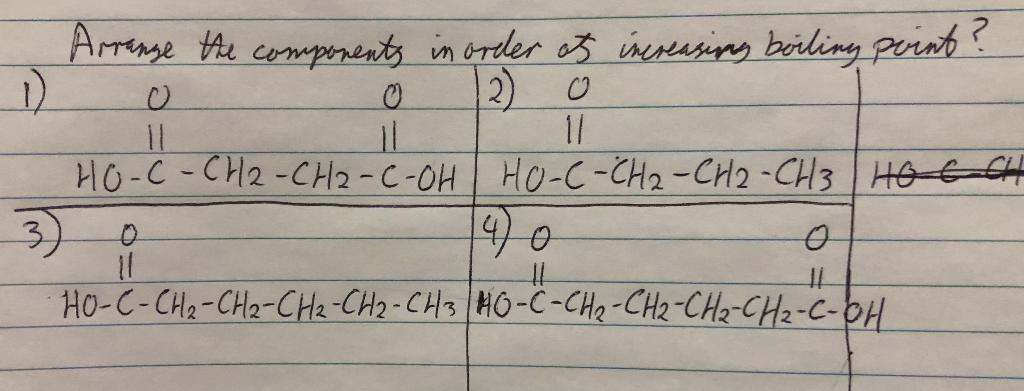 Arrange the components in order of increasing boiling point?
1) O O 2) O
|| || ||
HO-C-CH2-CH2-C-OH HO-C-CH2-CH2-CH3 HO-C-CH
3) O 4) O O
|| || ||
HO-C-CH2-CH2-CH2-CH2-CH3 HO-C-CH2-CH2-CH2-CH2-C-OH